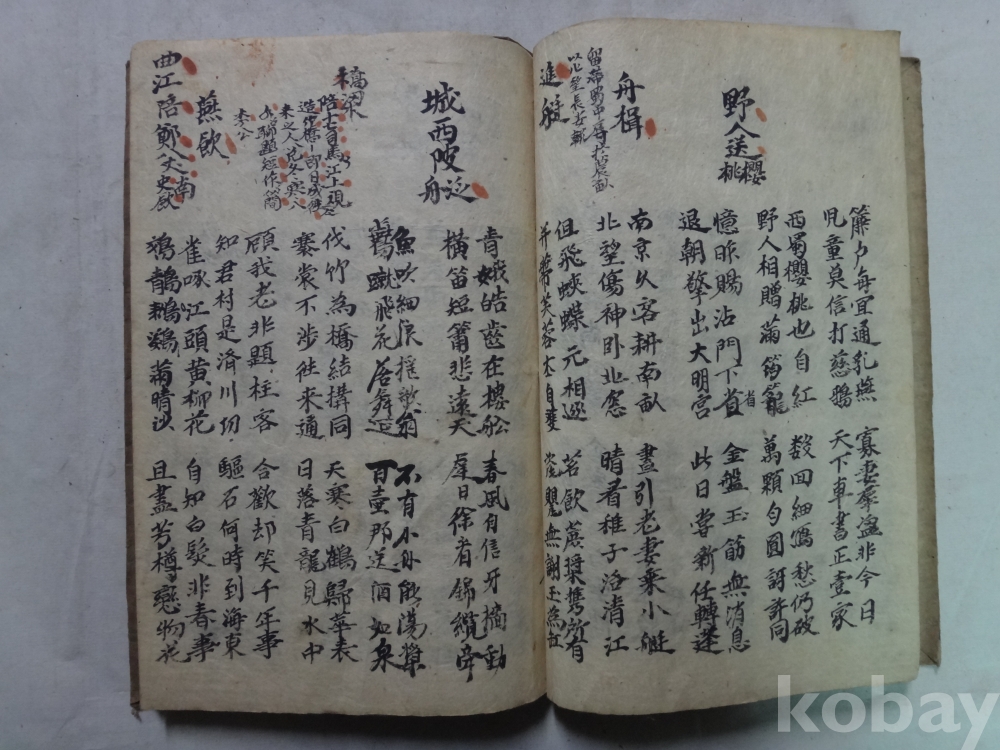 簾戶每宜通乳燕 寡妻羣盜非今日
兒童莫信打慈鴉 天下車書正壹家
野人送櫻桃
西蜀櫻桃也自紅 數回細寫愁仍破
野人相贈滿筠籠 萬顆勻圓訝許同
憶昨賜沾門下省 金盤玉筯無消息
省
退朝擎出大明宮 此日嘗新任轉蓬
舟楫
南京久客耕南畝 晝引老妻乘小艇
北望傷神臥北窓 晴看稚子浴清江
進艇
俱飛蛺蝶元相逐 茗飲蔗漿携所有
並蔕芙蓉本自雙 瓷甖無謝玉為缸
城西陂泛舟
青蛾皓齒在樓舩 春風自信牙檣動
橫笛短簫悲遠天 遲日徐看錦纜牽
魚吹細浪搖歌扇 不有小舟能蕩槳
鷰蹴飛花落舞筵 百壺那送酒如泉
橋梁
陪七司馬江上觀
造竹橋即日成往
來之人免冬寒入
水聊題短作簡
李公
伐竹為橋結構同 天寒白鶴歸華表
褰裳不涉往來通 日落青龍見水中
顧我老非題柱客 合歡却笑千年事
知君村是濟川功 驅石何時到海東
燕飲
曲江陪鄭八丈南史飲
雀啄江頭黃柳花 自知白髮非春事
鵁鶄鸂鶒滿晴沙 且盡芳樽戀物花
kobay